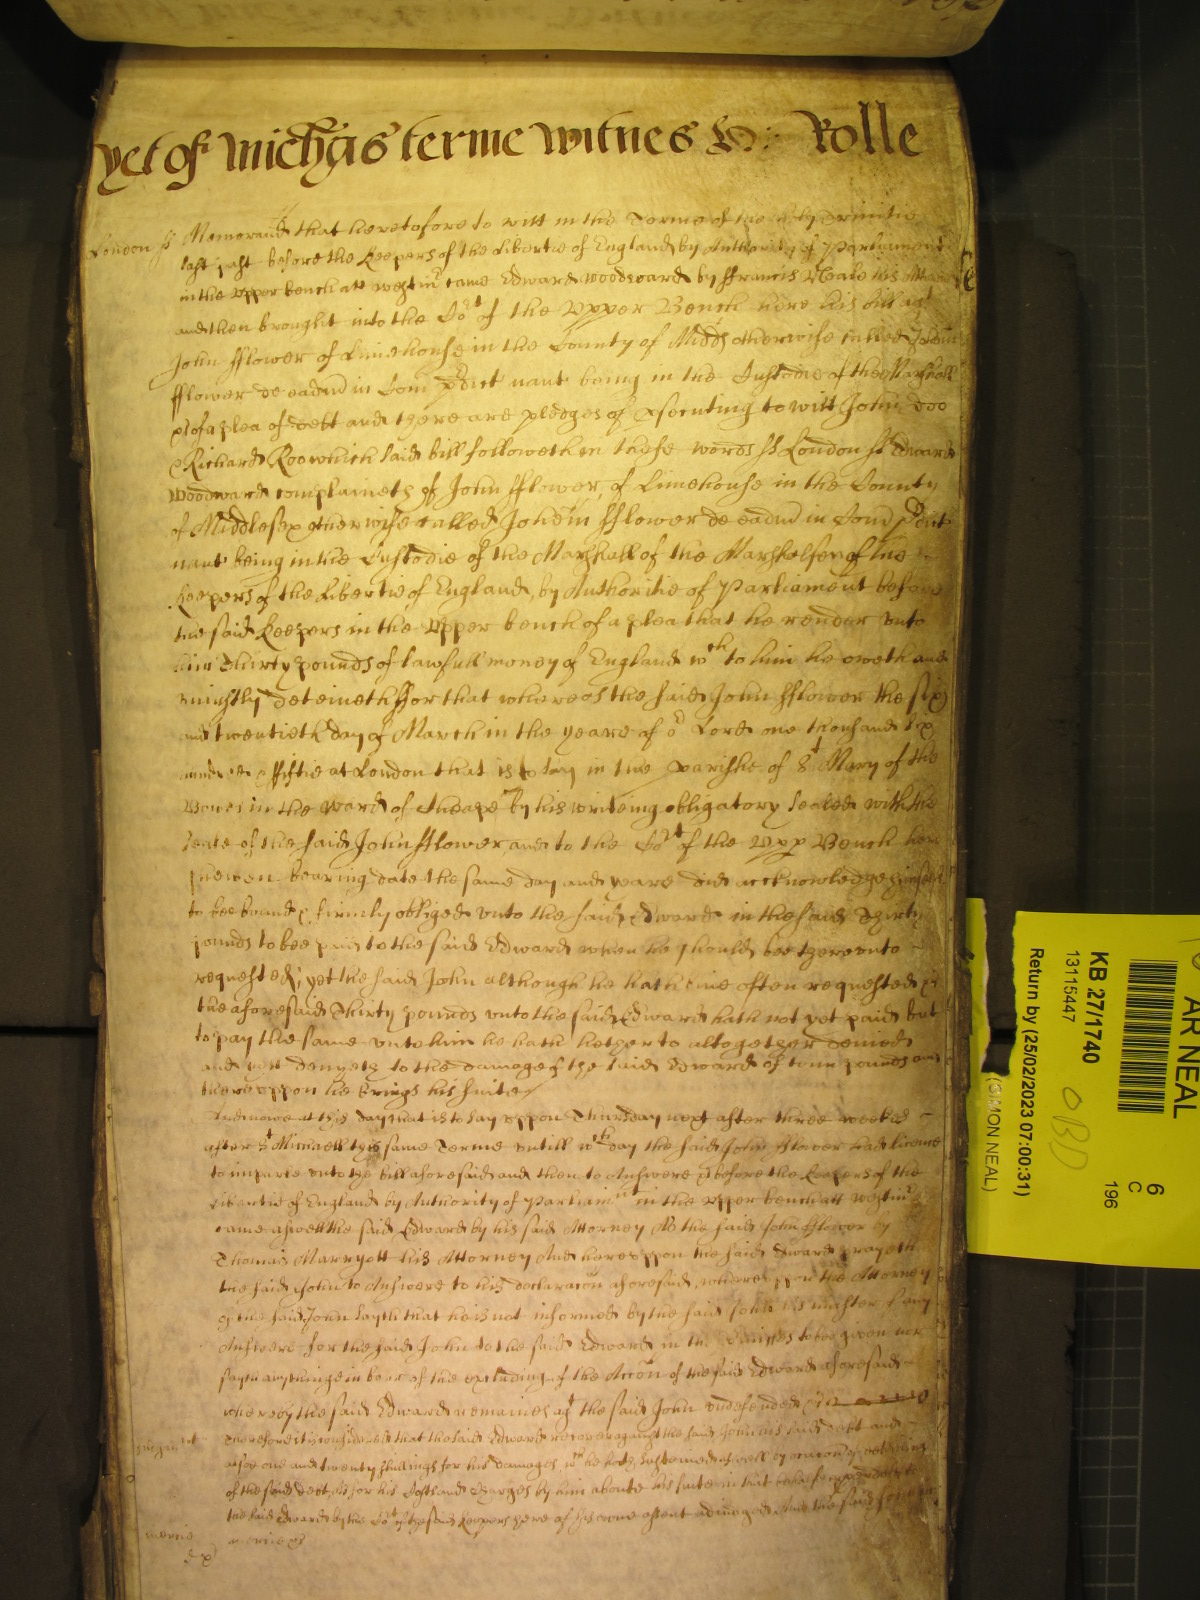 yet of Mich̃is terme Witnes H: Rolle
London ss Memorand that heretofore to witt in the Terme of the holy Trinitie
last past before the Keepers of the Libertie of England by Authority of Parliament
in the Upper bench att westm̃ came Edward Woodward by ffrancis Meale his Attorn
and then brought into the Cort of the Upper Bench here his bill agt
John fflower of Limehouse in the County of Midds otherwise called Johem
fflower de eadm in Com pred being in the Custodie of the Marshall
&c of a plea of debt and there are pledges of psecuting to witt John Doo
& Richard Roo which said bill followeth in these words ss London ss Edward
Woodward complaineth of John fflower of Limehouse in the County
of Middlesex otherwise called Johem fflower de eadm in Com
naut being in the Custodie of the Marshall of the Marshalsey of the
Keepers of the Libertie of England by Authoritie of Parliament before
the said Keepers in the Upper bench of a plea that he render unto
him Thirty pounds of lawfull money of England wch to him he oweth and
uniustly deteineth ffor that whereas the said John fflower the six
and twentieth day of March in the yeare of or Lord one thousand six
hundred & ffiftie at London that is to say in the parishe of St Mary of the
Bowe in the ward of Cheape by his writeing obligatory sealed with the
seale of the said John fflower and to the Cort of the Upp Bench here
shewen bearing date the same day and yeare did acknowledge himselfe
to bee bound & firmly obliged unto the said Edward in the said Thirty
pounds to bee paid to the said Edward when he should bee thereunto
requested, yet the said John although he hath bine often requested &c
the aforesaid Thirty pounds unto the said Edward hath not yet paid but
to pay the same unto him he hath hetherto altogether denied
and yet denyeth to the damage of the said Edward of tenn pounds and
thereuppon he brings his suite
And nowe at this day that is to say uppon Thursday next after three weekes
after St Michaell this same Terme untill wch day the said John fflower had licence
to imparle unto the bill aforesaid and then to Answere &c before the Keepers of the
Libertie of England by Authority of Parliamt in the Upper bench att westm̃
came aswell the said Edward by his said Attorney As the said John fflower by
Thomas Marryott his Attorney And hereuppon the said Edward prayeth
the said John to Answere to his declaracõn aforesaid, whereuppon the Attorney
of the said John sayth that he is not informed by the said John his master of any
Answere for the said John to the said Edward in the premisses to bee given nor
sayth anythinge in barr of the excluding of the Accõn of the said Edward aforesaid
whereby the said Edward remaines agt the said John undefended &c
Judgment Therefore it is considered that the said Edward recover against the said John his said debt and
alsoe one and twenty shillings for his damages wch he hath susteined aswell by occasion of deteining
of the said debt As for his Costs and Charges by him aboute his suite in that behalfe expended to
the said Edward by the Cort of the said Keepers here of his owne assent adiudged And the said John in
mercie mercie &c